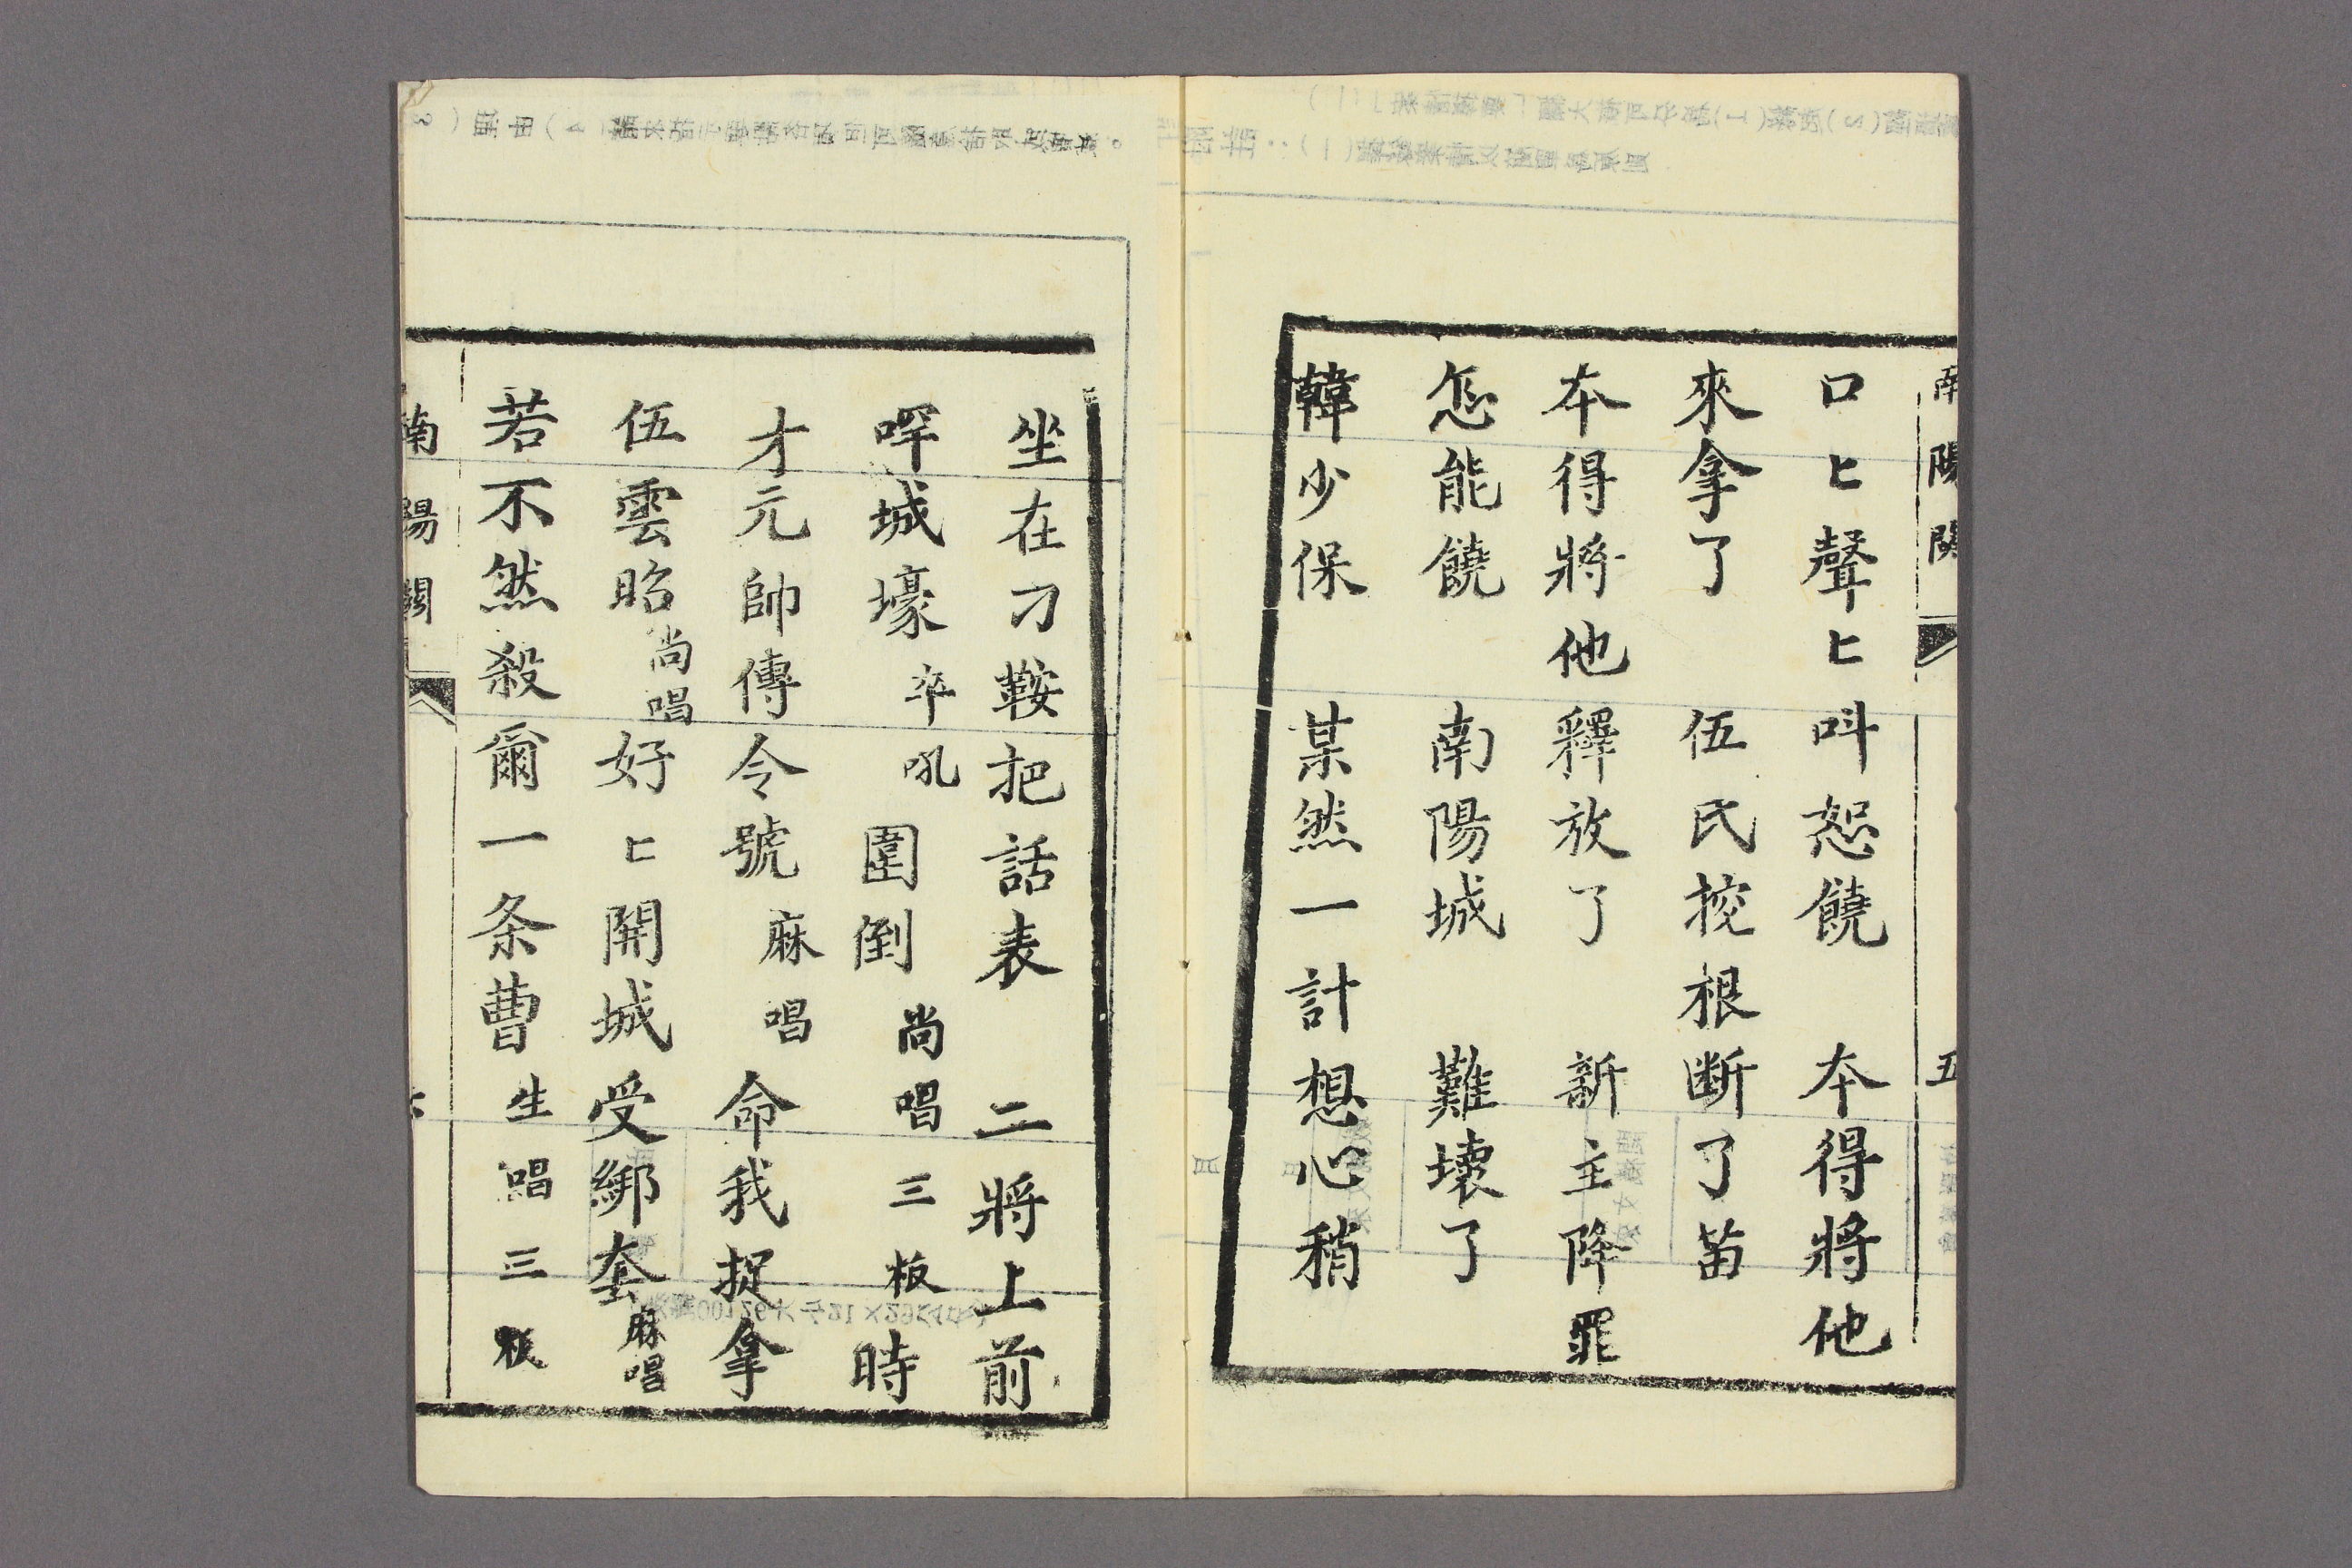 南陽関 五
口匕聲匕呌恕饒 本得將他
來拿了 伍氏挖根断了苗
本得將他釋放了 新主降罪
怎能饒 南陽城 難壞了
韓少保 某然一計想心稍
坐在刁鞍把話表 二將上前
哶城壕 卒吼 圍倒 尚唱三板 時
才元帥傳令號 麻唱 命我捉拿
伍雲昭 尚唱 好匕開城受綁套 麻唱
若不然殺爾一条曹 生唱三板
南陽関